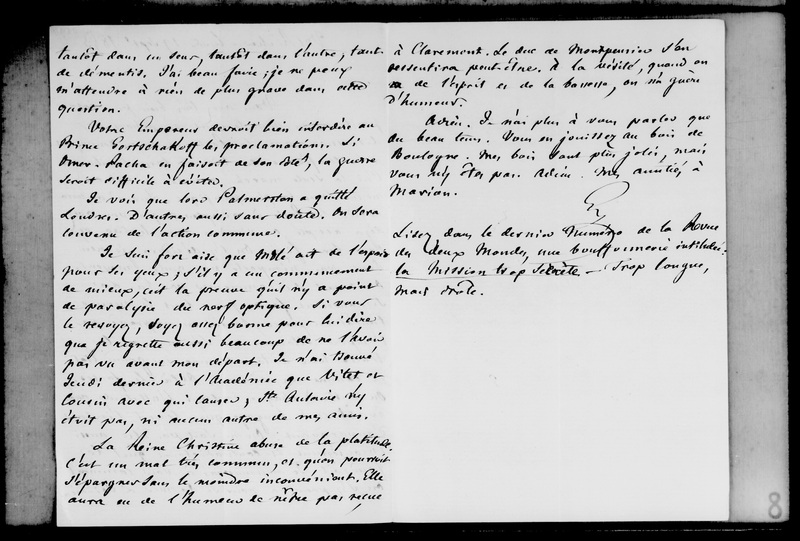 tantôt dans un sens, tantôt dans l'autre, tant
de démentis. J'ai beau faire ; je ne peux
m'attendre à rien de plus grave dans cette
question.
Votre Empereur devroit bien interdire au
Prince Gortschakoff les proclamations. Si
Omer-Pacha en faisoit de son côté, la guerre
seroit difficile à éviter.
Je vois que lord Palmerston a quitté
Londres. D'autres aussi sans doute. On sera
convenu de l'action commune.
Je suis fort aise que Molé ait de l'espoir
pour ses yeux ; s'il y a un commencement
de mieux, c'est la preuve qu'il n'y a point
de paralysie du nerf optique. Si vous
le revoyez, soyez assez bonne pour lui dire
que je regrette aussi beaucoup de ne l'avoir
pas vu avant mon départ. Je n'ai trouvé
Jeudi dernier à l'Académie que Vitet et
Cousin avec qui causer ; Ste Aulaire n'y
étoit pas, ni aucun autre de mes amis.
La Reine Christine abuse de la platitude.
C'est un mal très commun, et qu'on pourroit
s'épargner sans le moindre inconvénient. Elle
aura eu de l'humeur de n'être pas reçue
à Claremont. Le duc de Montpensier s'en
ressentira peut-être. A la vérité, quand on
a de l'esprit et de la bassesse, on n'a guère
d'humeur.
Adieu. Je n'ai plus à vous parler que
du beau tems. Vous en jouissez au bois de
Boulogne. Mes bois sont plus jolis, mais
vous n'y êtes pas. Adieu. Mes amitiés à
Marion.
G
Lisez dans le dernier numéro de la Revue
des deux Mondes, une bouffonnerie intitulée :
la Mission trop secrète — Trop longue,
mais drôle.
8